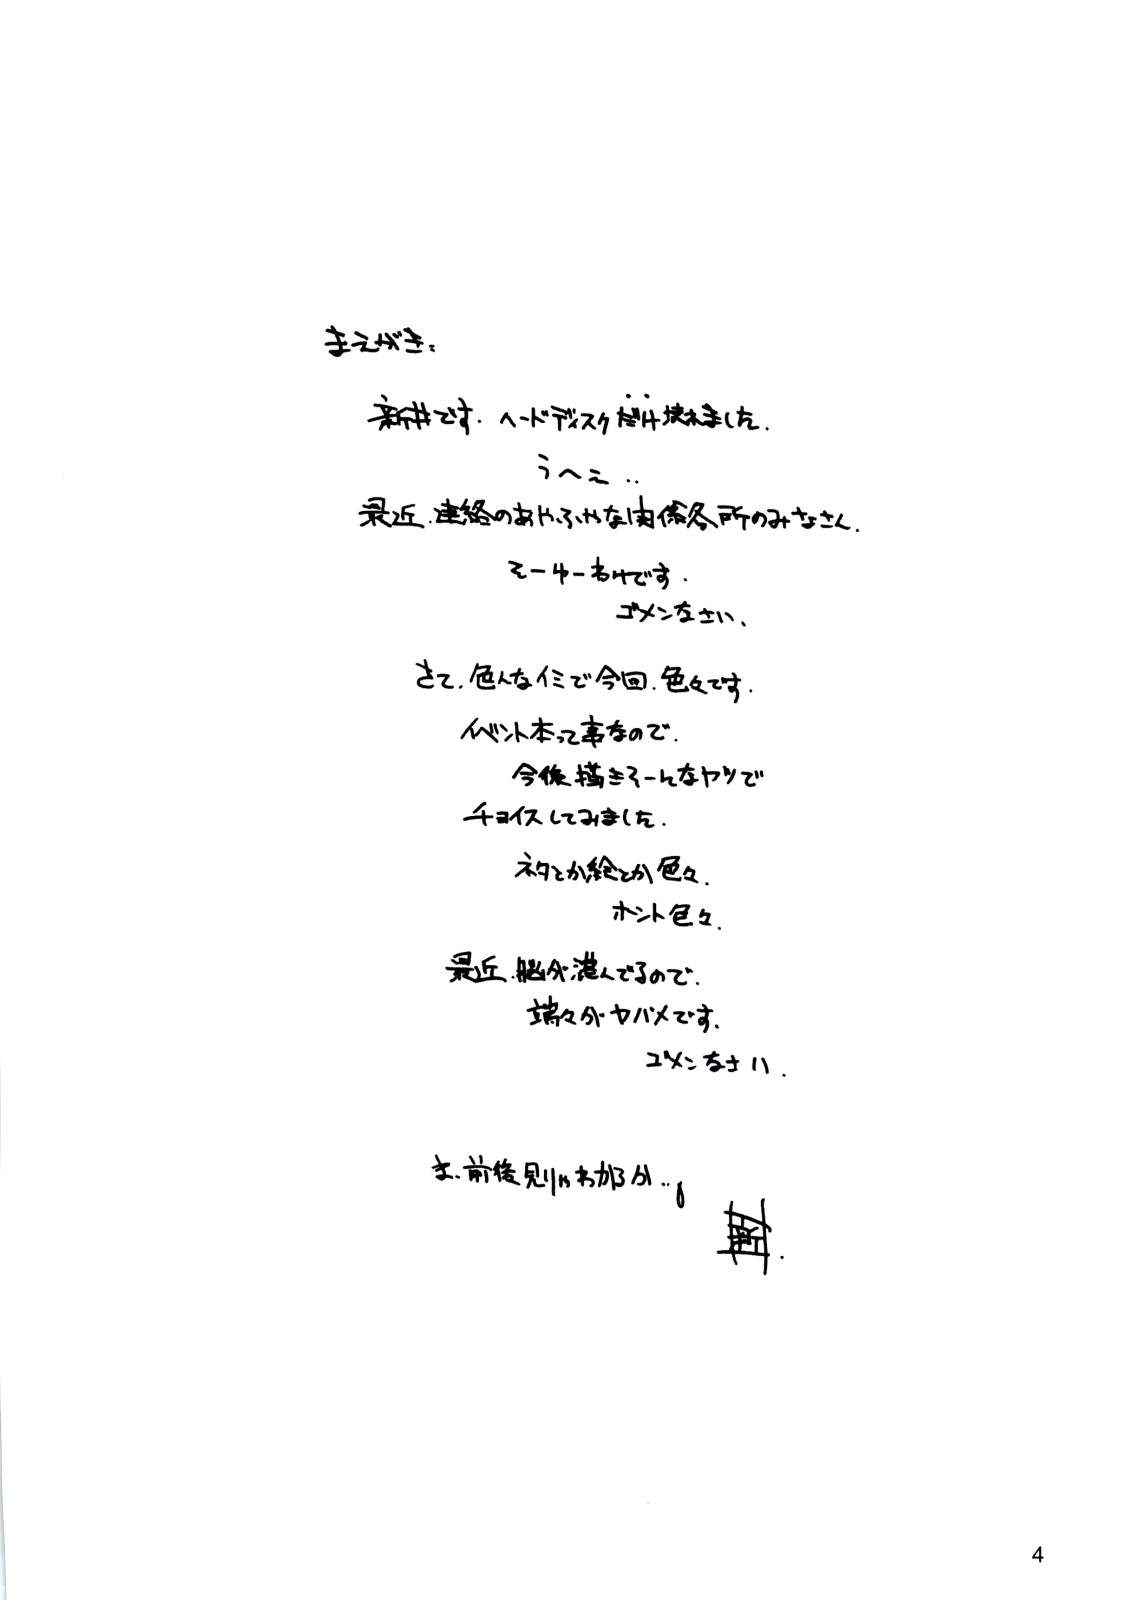 まえがき:
新井です. ヘードディスクだけ壊れました.
うへぇ..
最近.連絡のあやふやな関係各所のみなさん.
そーゆーわけです.
ゴメンなさい、
さて.色んなイミで今回.色々です.
イベント本って事なので.
今後描きそーんなヤツで
チョイスしてみました.
ネタとか絵とか色々.
ホント色々.
最近.脳が澱んでるので.
端々がヤバメです.
ゴメンなさい.
ま、前後見りゃわかるか..
4